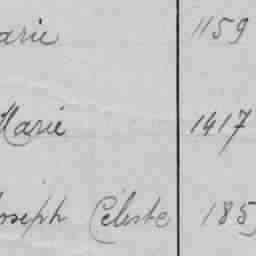 arie 1159
Marie 1417
Joseph Céleste 185